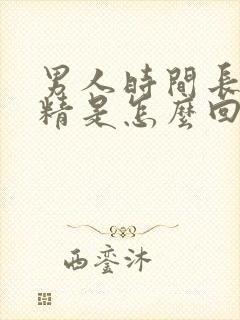 男人時間長
精是怎麼回
西鑾沐